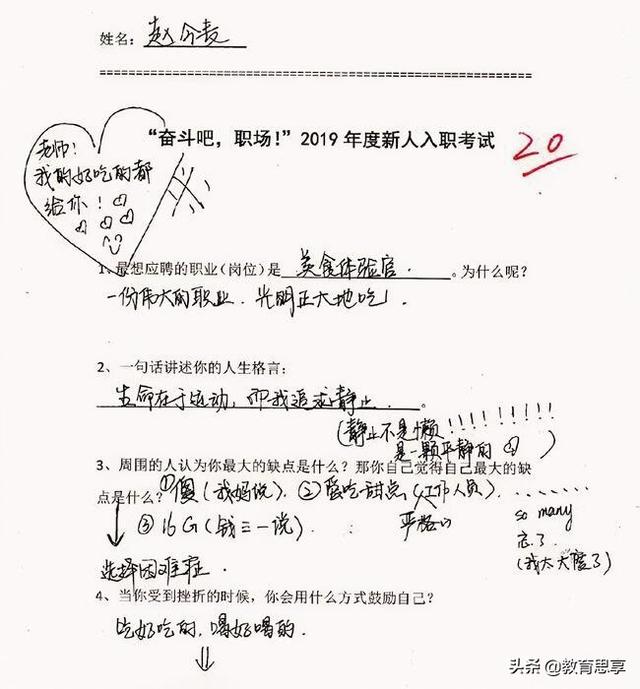 姓名：赵今麦
“奋斗吧，职场！”2019 年度新人入职考试
20
老师！
我的好吃的都
给你！
1、最想应聘的职业（岗位）是 美食体验官 。为什么呢？
一份伟大的职业．光明正大地吃！
2、一句话讲述你的人生格言：
生命在于运动，而我追求静止 。
（静止不是懒！！！！！！！！！
是一颗平静的 ）
3、周围的人认为你最大的缺点是什么？那你自己觉得自己最大的缺
点是什么？①傻（我妈说）．②爱吃甜点（工作人员）．......
③16G（钱三一说）．
so many
忘了．
（我太天 了）
选择困难症．
4、当你受到挫折的时候，你会用什么方式鼓励自己？
吃好吃的，喝好喝的．
头条 @教育思享